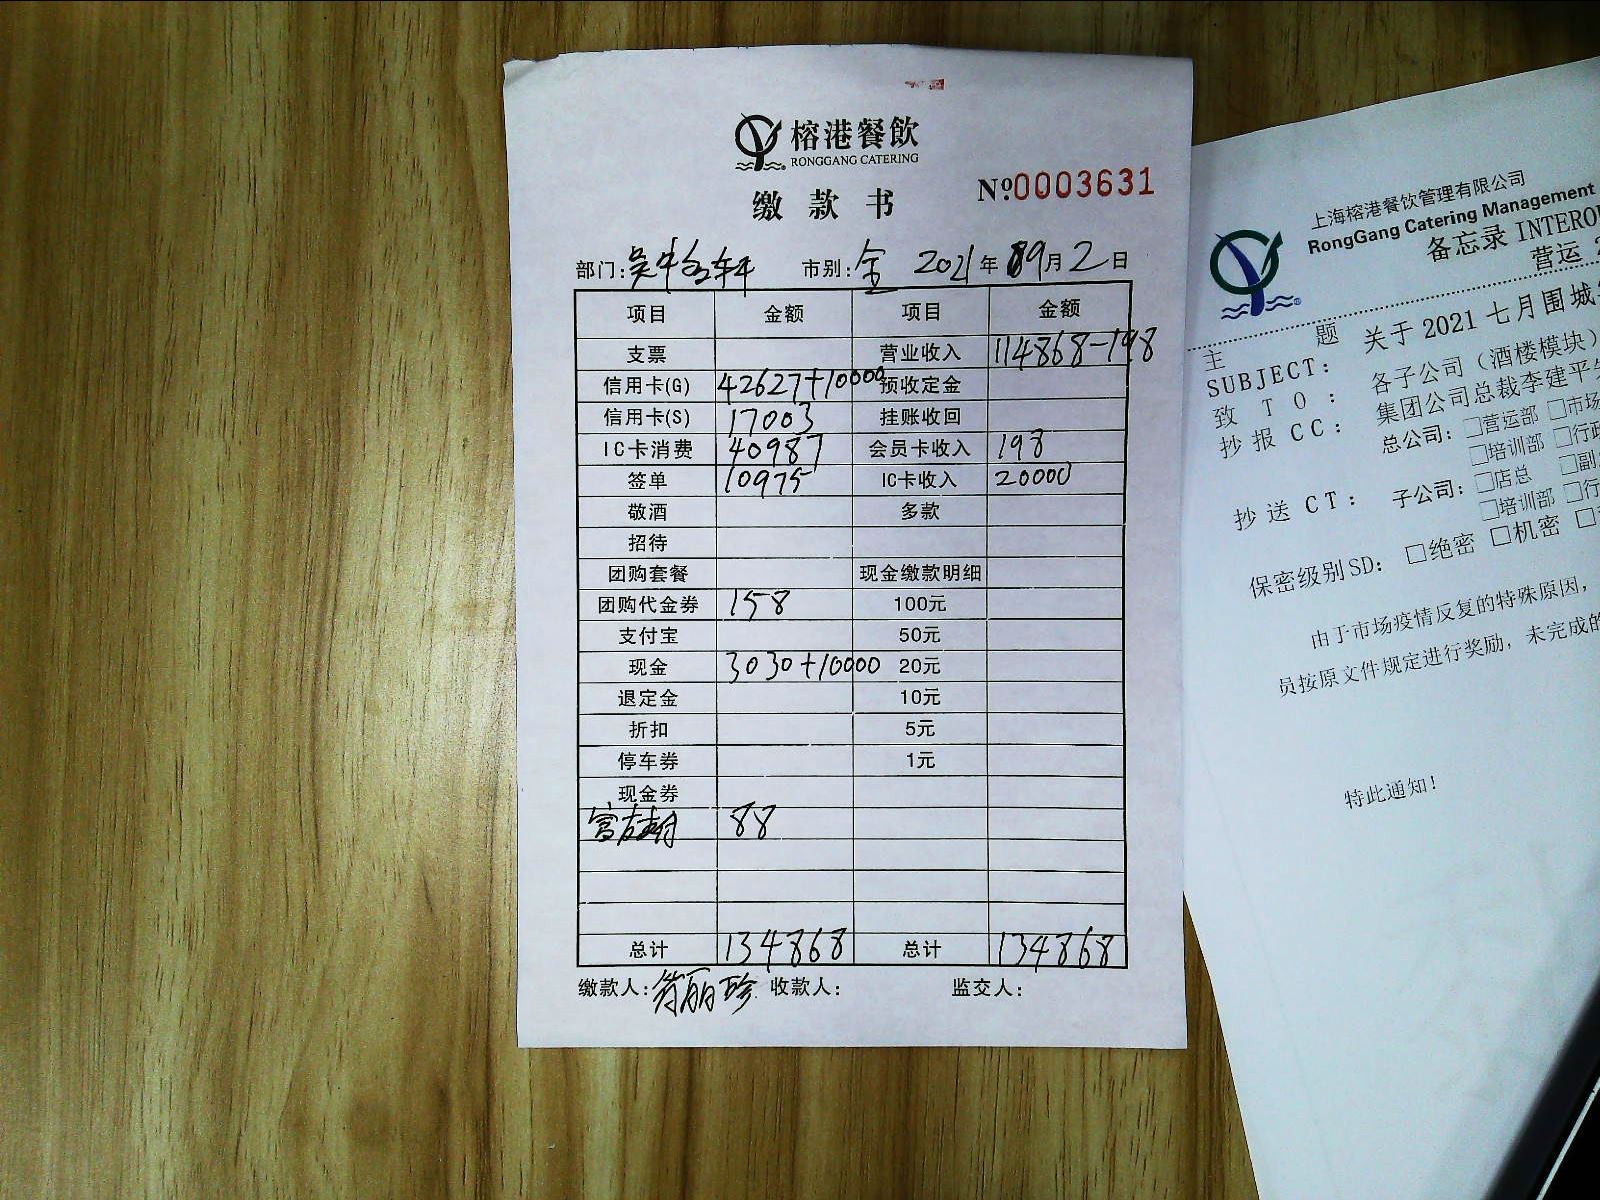 榕港餐飲
RONGGANG CATERING
缴款书
№0003631
部门: 市别:全 2021年9月2日
项目 金额 项目 金额
支票 营业收入 114868-198
信用卡(G) 42627+10000 预收定金
信用卡(S) 17003 挂账收回
IC卡消费 40987 会员卡收入 198
签单 10975 IC卡收入 20000
敬酒 多款
招待
团购套餐 现金缴款明细
团购代金券 158 100元
支付宝 50元
现金 3030+10000 20元
退定金 10元
折扣 5元
停车券 1元
现金券
富友支付 88
总计 134868 总计 134868
缴款人: 丽珍 收款人: 监交人:
上海榕港餐饮管理有限公司
RongGang Catering Management
备忘录 INTERO
营运 2
主 题 关于 2021 七月围城
SUBJECT: 各子公司（酒楼模块）
致 TO: 集团公司总裁李建平
抄报 CC: 总公司: □营运部 □市场
□培训部 □行政
抄送 CT: 子公司: □店总 □副
□培训部 □行
保密级别 SD: □绝密 □机密 □
由于市场疫情反复的特殊原因，
员按原文件规定进行奖励，未完成的
特此通知！